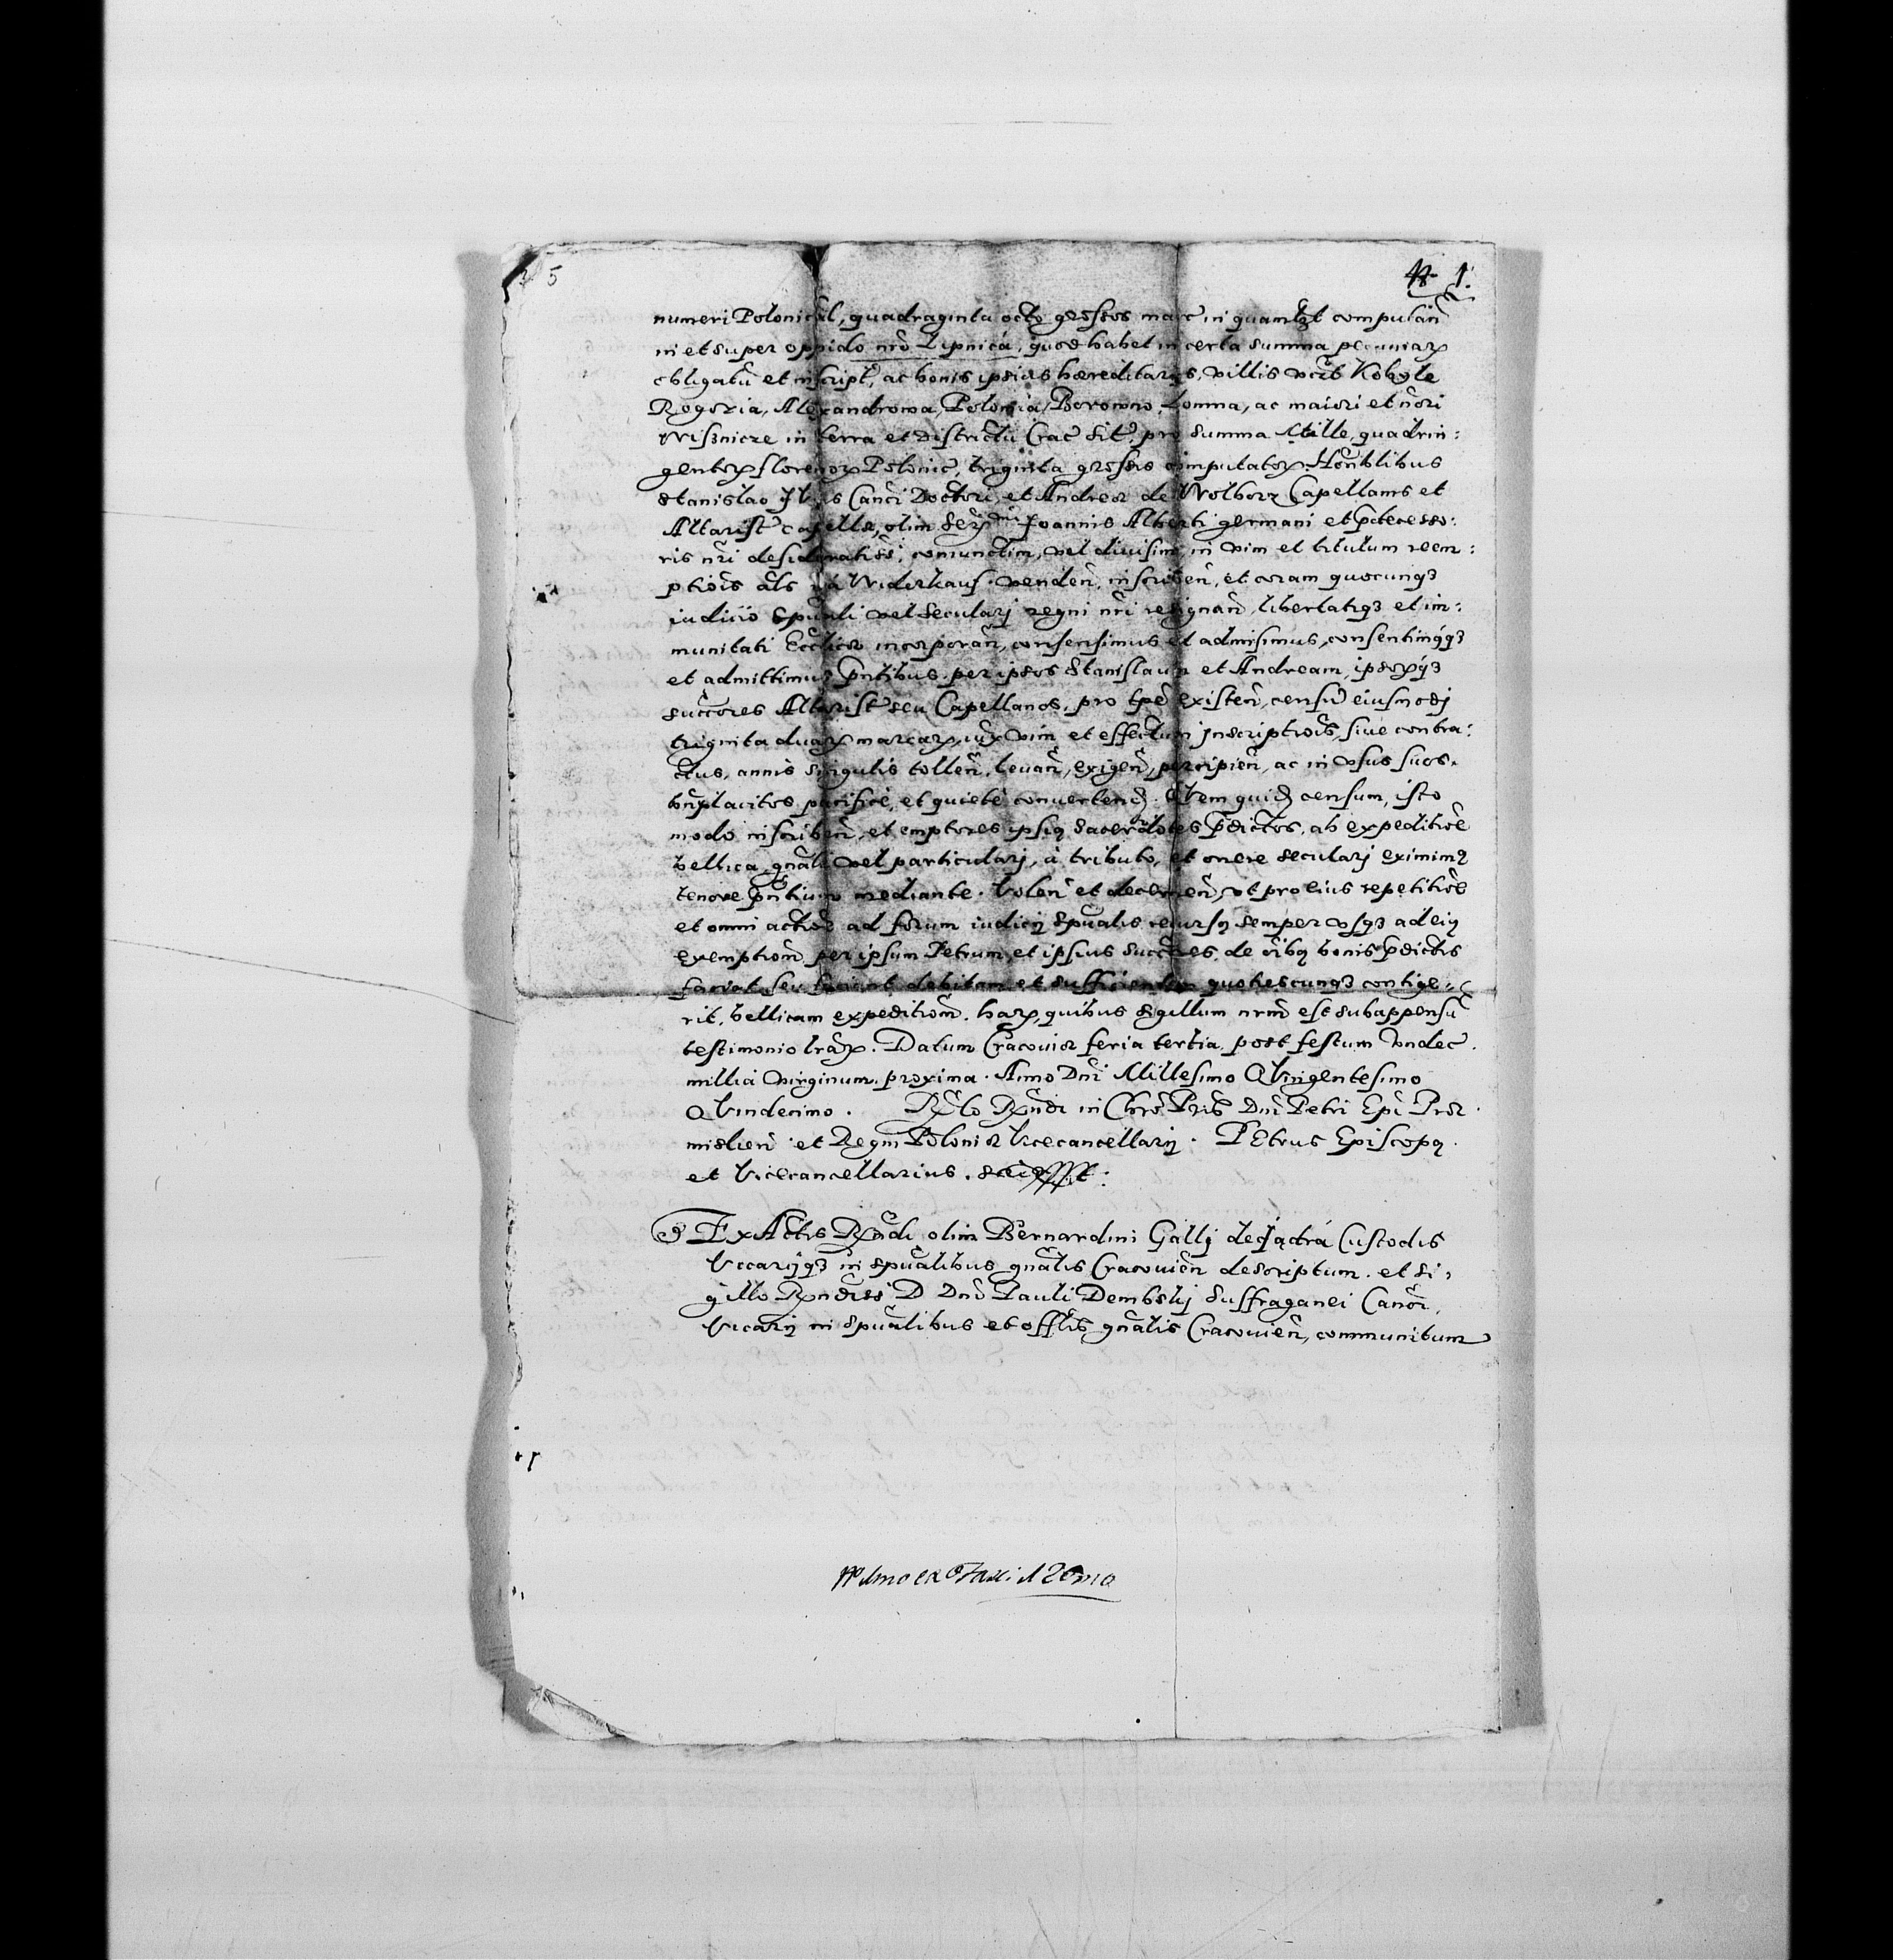 5
1.
numeri Polonical, quadraginta octo grossos marc in quamlꝫt computan̄
in et super oppido nr̄o Lipnica, quod habet in certa summa pecuniaꝝ
obligatū et inscript, ac bonis ipsius hæreditarijs, villis vcȝt Kobyle
Rogozia, Alexandrowa, Polomia, Borowno, Lomna, ac maiori et mori
Wisznicze in terra et Districtu Crac sit, pro summa Mille, quadrin:
gentoꝝ florenoꝝ Polonic, triginta grossis computatoꝝ. Honblibus
Stanislao Canci Doctori, et Andreæ de Wolborz Capellanis et
Altarist capellæ, olim Joannis Alberti germani et p̄decesso:
ris nr̄i desideratiss, coniunctim, vel diuisim, in vim et titulum reem:
ptiōis als na Widerkauf. venden̄, inscriben̄, et coram quocunqꝫ
iudicio spūali vel secularj regni nr̄i resignan̄, libertatiqꝫ et im:
munitati Eccl̄iæ incorporan̄, consensimus et admisimus, consentimꝰqꝫ
et admittimus p̄ntibus. per ipsos Stanislaum et Andream, ipsoꝝqꝫ
succores Altarist seu Capellanos, pro tpe existen̄, censū eiusmodj
triginta duaꝝ marcaꝝ, iux vim et effectum Inscriptiōis, siue contra:
ctus, annis singulis tollen̄, leuan̄, exigen̄, percipien̄, ac in vsus suos.
bn̄placitos pacificè, et quietè conuertend. Quem quid censum, isto
modo inscriben̄, et emptores ipsiꝰ sacerdotes p̄dictos, ab expeditiōe
bellica gn̄ali vel particularj, à tributo, et onere secularj eximimꝰ
tenore p̄ntium mediante. Volen̄ et decernen̄, vt pro eius repetitiōe
et omni actiōe ad forum iudicij spūalis recursꝰ semper vsqꝫ ad eiꝰ
exemptionē per ipsum Petrum, et ipsius succ̄res, de qibꝰ bonis p̄dictis
faciat seu facient debitam et sufficientem quotiescunqꝫ contige:
rit, bellicam expeditionē. haꝝ, quibus sigillum nrm̄ est subappensū
testimonio lr̄aꝝ. Datum Cracouiæ feria tertia, post festum vndec.
millia virginum, proxima. Anno Dnī Millesimo Quingentesimo
Quindecimo. Rndi in Chrō Prīs Dnī Petri Epī Præ
mislien̄ et Regni Poloniæ Vicecancellarij. PEtrus Episcopꝰ.
et Vicecancellarius.
Ex Actis Rn̄di olim Bernardini Gallj de Jadra Custodis
Vicarijqꝫ in spūalibus gn̄alis Cracouien̄ descriptum. et si,
gillo Rn̄diss D Dnī Pauli Dembskj Suffraganei Canōi,
Vicarij in spūalibus et offlis gn̄alis Cracouien̄, communitum